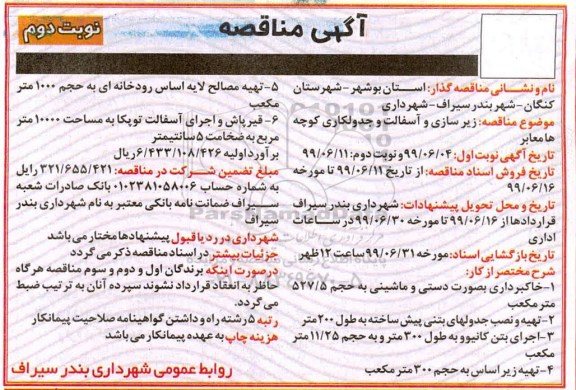 آگهی مناقصه
نوبت دوم
نام و نشانی مناقصه گذار: استان بوشهر - شهرستان
کنگان - شهر بندر سیراف - شهرداری
موضوع مناقصه: زیر سازی و آسفالت و جدولکاری کوچه
ها معابر
تاریخ آگهی نوبت اول: ۹۹/۰۶/۰۴ و نوبت دوم: ۹۹/۰۶/۱۱
تاریخ فروش اسناد مناقصه: از تاریخ ۹۹/۰۶/۱۱ تا مورخه
۹۹/۰۶/۱۶
تاریخ و محل تحویل پیشنهادات: شهرداری بندر سیراف
قراردادها از ۹۹/۰۶/۱۶ تا مورخه ۹۹/۰۶/۳۰ در ساعات
اداری
تاریخ بازگشایی اسناد: مورخه ۹۹/۰۶/۳۱ ساعت ۱۲ ظهر
شرح مختصر از کار:
۱- خاکبرداری بصورت دستی و ماشینی به حجم ۵۲۷/۵
متر مکعب
۲- تهیه و نصب جدولهای بتنی پیش ساخته به طول ۲۰۰ متر
۳- اجرای بتن کانیوو به طول ۳۰۰ متر و به حجم ۱۱/۲۵ متر
مکعب
۴- تهیه زیر اساس به حجم ۳۰۰ متر مکعب
۵- تهیه مصالح لایه اساس رودخانه ای به حجم ۱۰۰۰ متر
مکعب
۶- قیرپاش و اجرای آسفالت توپکا به مساحت ۱۰۰۰۰ متر
مربع به ضخامت ۵ سانتیمتر
برآورد اولیه ۶/۴۳۳/۱۰۸/۴۲۶ ریال
مبلغ تضمین شرکت در مناقصه: ۳۲۱/۶۵۵/۴۲۱ رایل
به شماره حساب ۰۱۰۲۳۸۱۰۵۸۰۰۶ بانک صادرات شعبه
سیراف ضمانت نامه بانکی معتبر به نام شهرداری بندر
سیراف
شهرداری در رد یا قبول پیشنهادها مختار می باشد
جزئیات بیشتر در اسناد مناقصه ذکر می گردد
درصورت اینکه برندگان اول و دوم و سوم مناقصه هرگاه
حاظر به انعقاد قرارداد نشوند سپرده آنان به ترتیب ضبط
می گردد.
رتبه ۵ رشته راه و داشتن گواهینامه صلاحیت پیمانکار
هزینه چاپ به عهده پیمانکار می باشد
روابط عمومی شهرداری بندر سیراف